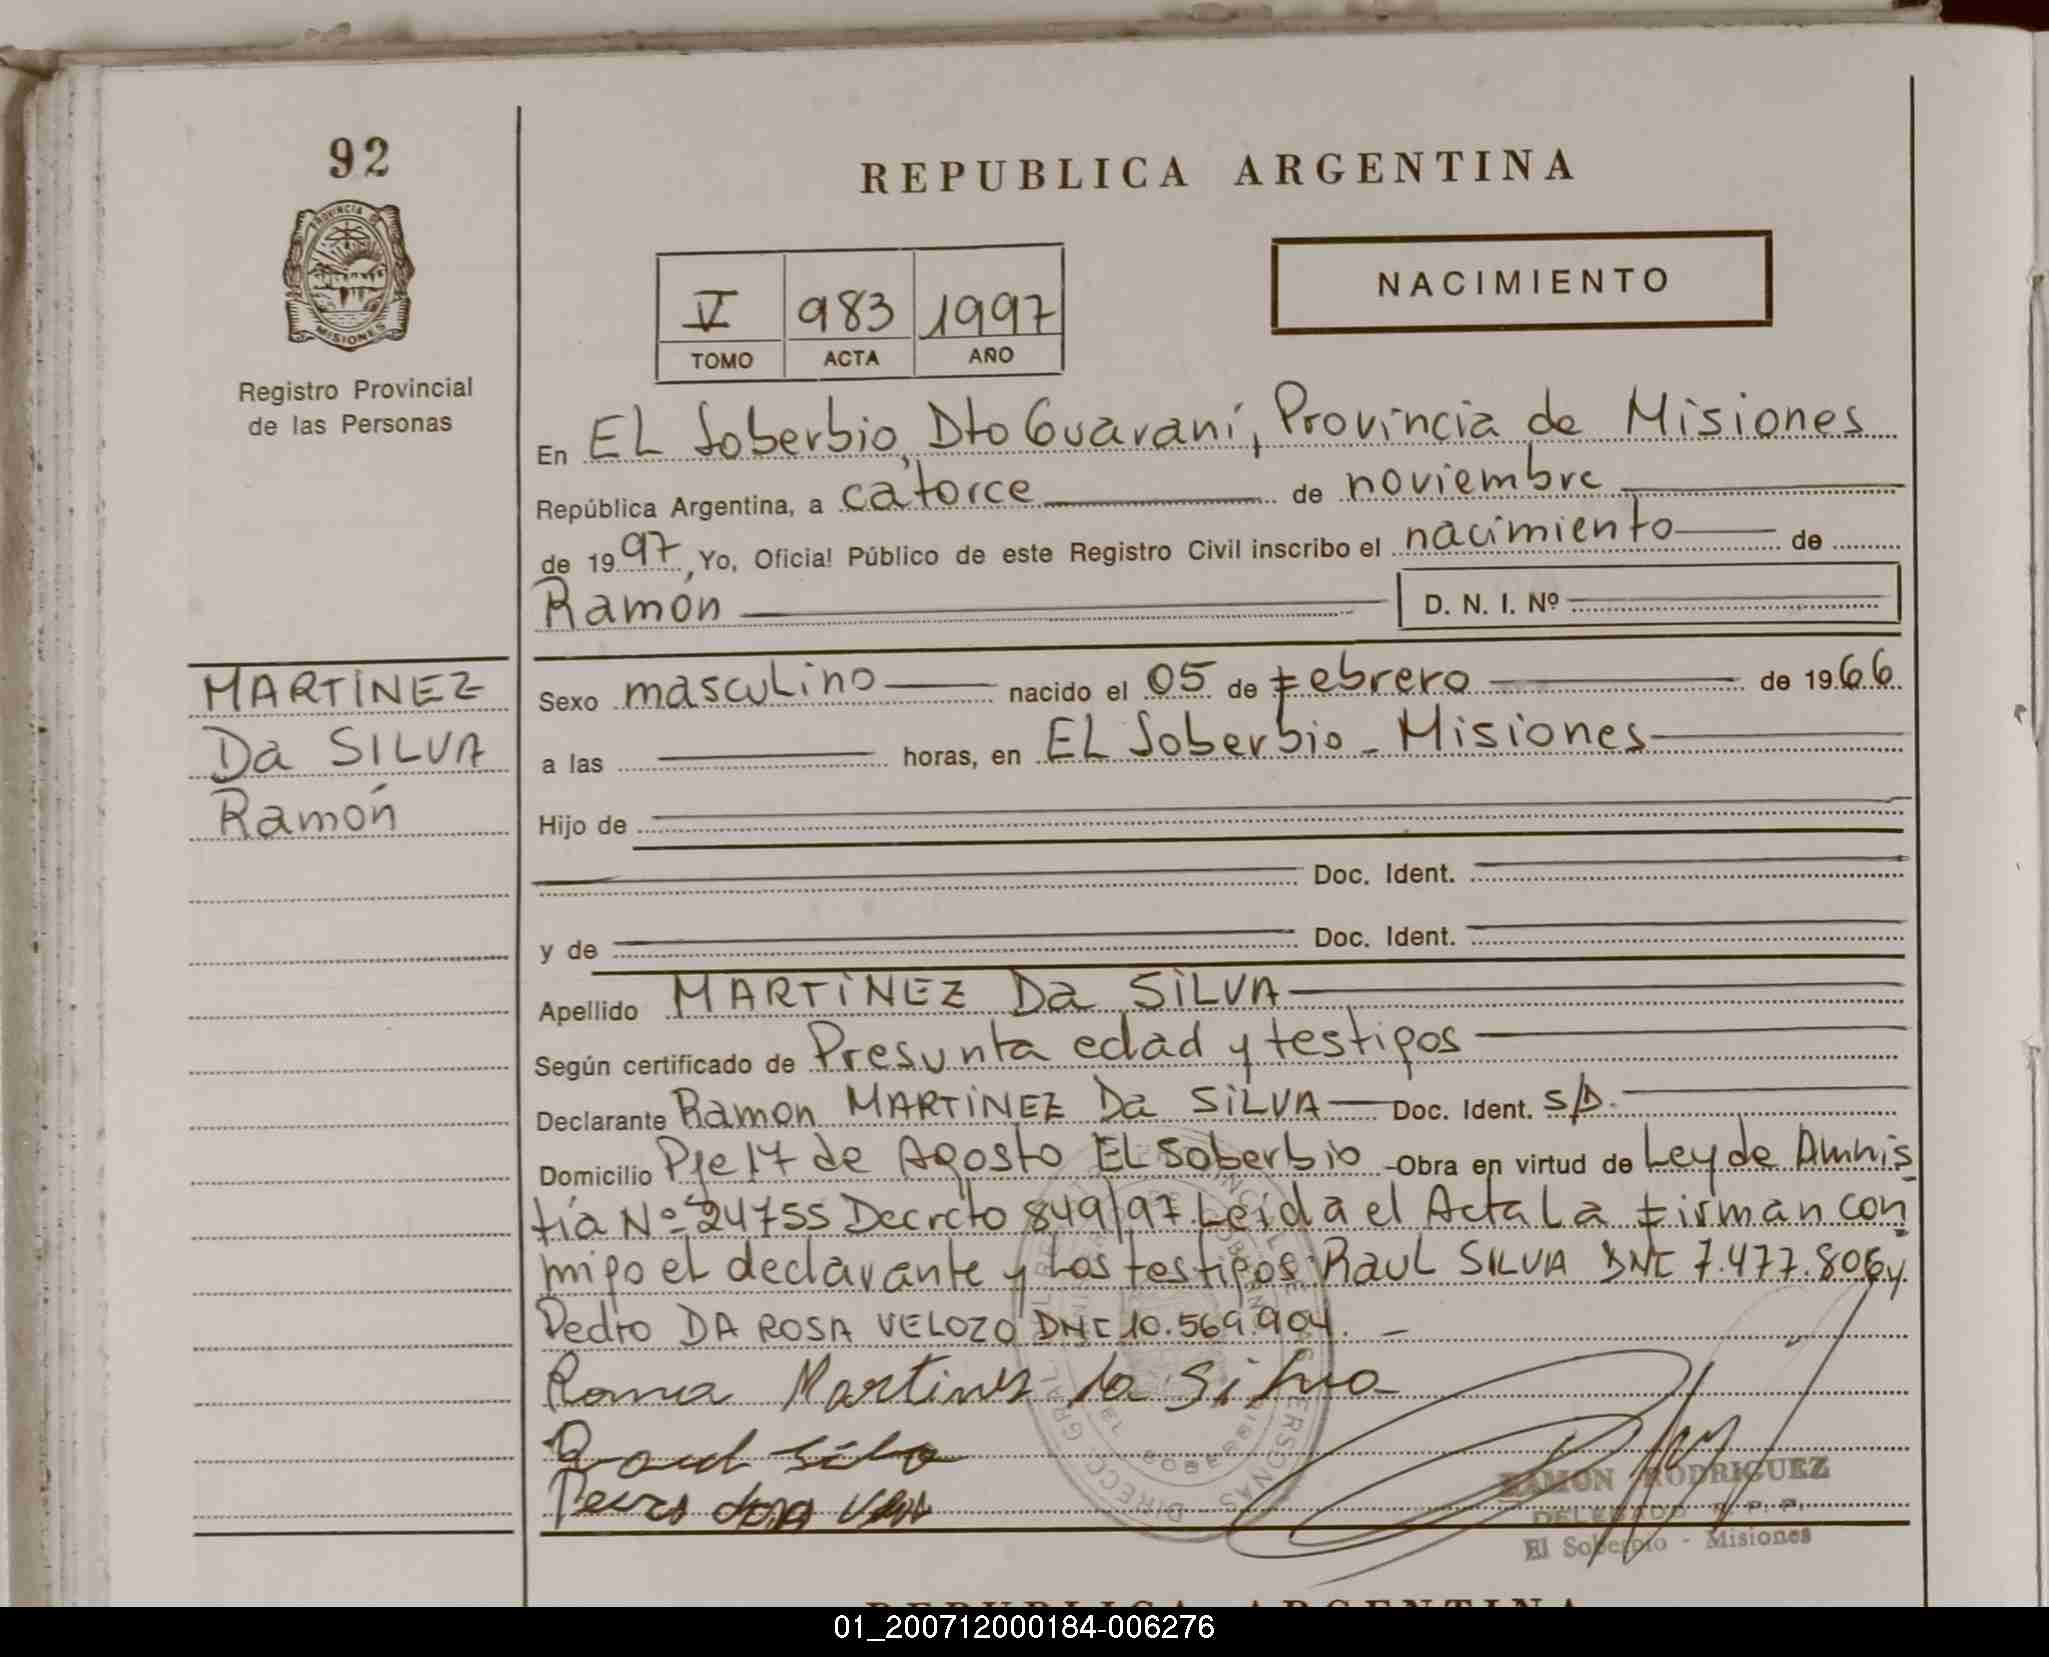 92
PROVINCIA DE
MISIONES
Registro Provincial
de las Personas
REPUBLICA ARGENTINA
NACIMIENTO
V 983 1997
TOMO ACTA AÑO
En EL Soberbio, Dto Guaraní, Provincia de Misiones
República Argentina, a catorce de noviembre
de 1997, Yo, Oficial Público de este Registro Civil inscribo el nacimiento de
Ramón D. N. I. Nº
MARTINEZ
Da SILVA
Ramón
Sexo masculino nacido el 05 de Febrero de 1966
a las horas, en EL Soberbio - Misiones
Hijo de
Doc. Ident.
y de Doc. Ident.
Apellido MARTINEZ Da SILVA
Según certificado de Presunta edad y testigos
Declarante Ramon MARTINEZ Da SILVA Doc. Ident. S/D.
Domicilio Pje 17 de Agosto EL Soberbio -Obra en virtud de Ley de Amnis
tía Nº 24755 Decreto 849/97 Leida el Acta La firman con
migo el declarante y Los testigos: Raul SILVA DNI 7.477.806 y
Pedro DA ROSA VELOZO DNI 10.569.904. -
Martines da Silva
RAMON RODRIGUEZ
DELEGADO R. P. P.
El Soberbio - Misiones
REPUBLICA ARGENTINA
01_200712000184-006276